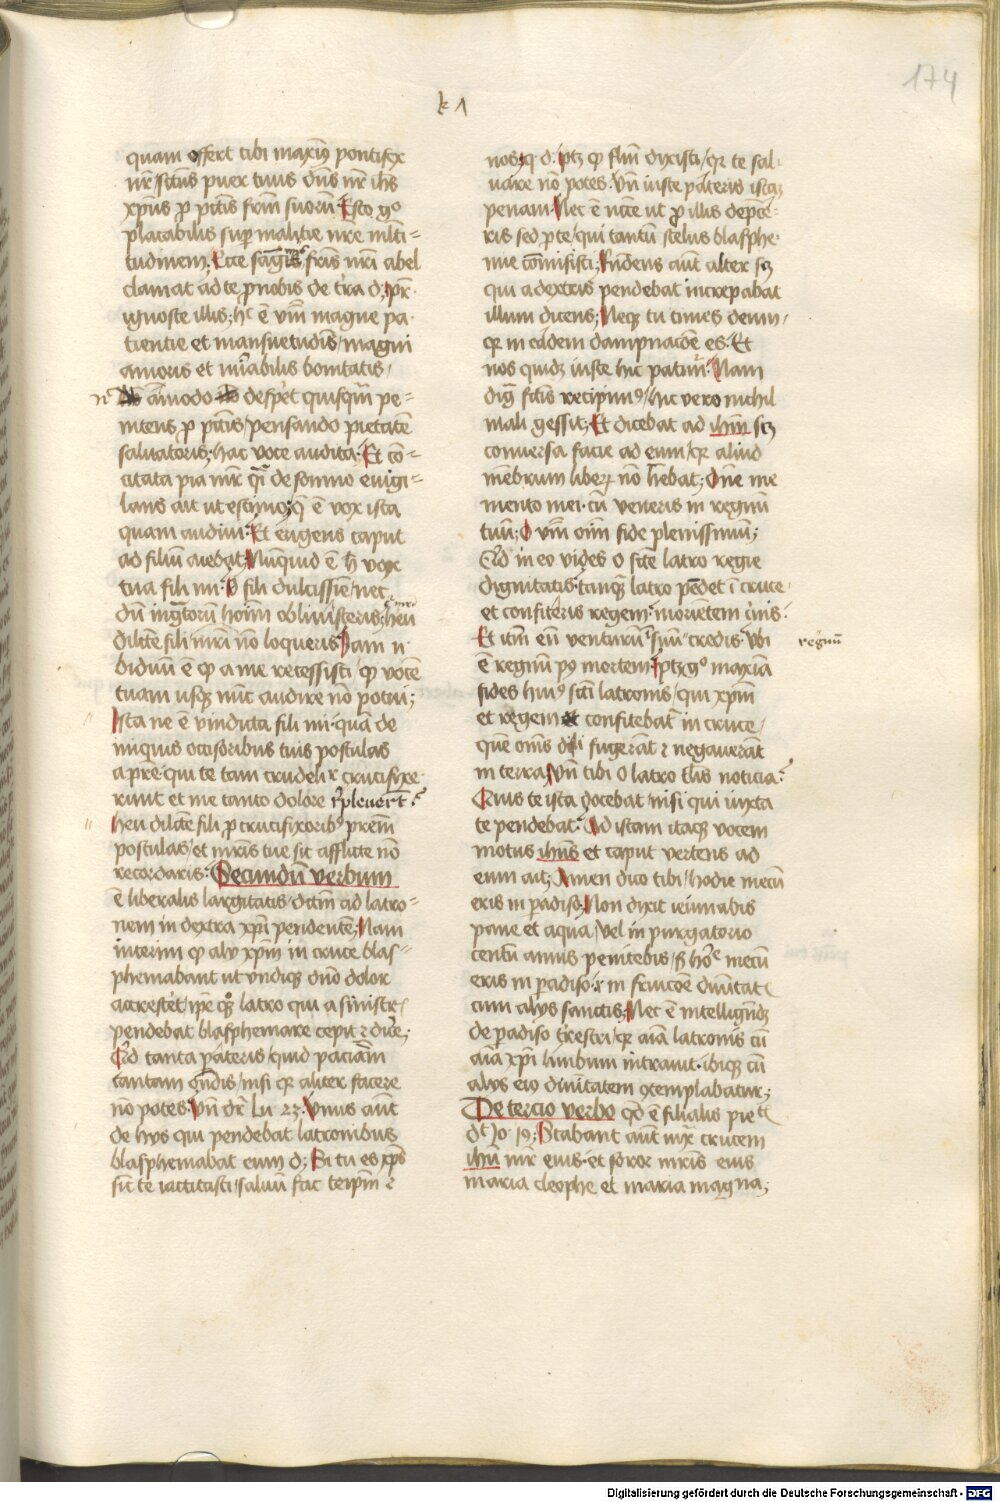 174
k 1
quam offert tibi maxiꝰ pontifex
nr̄ sctūs puer tuus dn̄s nr̄ ihs
xp̄us ꝓ pctīs frm̄ suoru Esto gº
placabilis suꝑ malitie nr̄e ml̄ti=
tudinem; Ecce sāguis frīs nr̄i abel
clamat ad te ꝓ nobis de tr̄a d; pr̄
ignosce illis; hᶜ ē v̄m magne pa-
tientie et mansuetudis̄ / magni
amoris et mīabilis bonitatis /
amodo desꝑet quisqm̄ pe=
nitens ꝓ pctīs / pensando pietatē
saluatoris; hac voce audita Et cō=
citata pia mr̄ qi̅ de somno euigi=
lans ait ut estimo; q̄ ē vox ista
quam audiui Et erigens caput
ad filiū aiebat Nūquid ē h̄ vox
tua fili mi O fili dulcissīe / nec
dū ingr̄atorū hoīm obliuisceris; heu
dilc̄te fili / mr̄i nō loqueris Iam n
biduū ē ꝙ a me recessisti / ꝙ vocē
tuam usqꝫ nūc audire nō potui;
Ista ne ē vindicta fili mi quā de
iniquis occisoribus tuis postulas
a pr̄e qui te tam crudelir̄ crucifixe
runt et me tanto dolore r̄pleuer̄t ?
heu dilc̄te fili ꝓ crucifixoribꝰ prēm
postulas / et mr̄is tue sic afflicte nō
recordaris Secundū verbum
ē liberalis largitatis / dictm̄ ad latro=
nem in dextra xp̄i pendentē; Nam
interim ꝙ alij xp̄m in cruce blas=
phemabant ut vndiqꝫ dn̄o dolor
accresc̄et / ip̄e qꝫ latro qui a sinistr̄
pendebat blasphemare cepit ⁊ dic̄e;
Qd̄ tanta pateris / quid paciām
tantam gn̄dis / nisi qr̄ aliter facere
nō potes Vn̄ dr̄ Lu 23 Vnus aut̄
de hijs qui pendebat latronibus
blasphemabat eum d; Si tu es xp̄s
sic te iactitasti / saluū fac teip̄m ⁊
nos; q d. ptꝫ ꝙ fl̄m dixisti / qr̄ te sal-
uare nō potes Vn̄ iuste pateris istaꝫ
penam Nec ē nc̄cē ut ꝓ illis dep̄ce
ris sed ꝓ te / qui tantū scelus blasphe
mie cōmisisti; Rn̄dens aut̄ alter scꝫ
qui a dextris pendebat increpabat
illum dicens; Neqꝫ tu times deum /
qr̄ in eādem dampnacōe es Et
nos quidꝫ iuste hic patim̄r Nam
dig̅ fctīs recipimꝰ / hic vero nichil
mali gessit; Et dicebat ad ihm̄ scꝫ
conuersa facie ad eum / qr̄ aliud
mēbrum liber nō h̄ebat; Dn̄e me
mento mei cū veneris in regnū
tuū; O v̄m oīm fide plenissimū;
Qd̄ in eo vides o scte latro regie
dignitatis tanqꝫ latro pēdet ī cruce
et confiteris regem moriētem c̄nis
Et itm̄ eū venturū ī suū credis Vbi
regnū
ē regnū pꝰ mortem Iptꝫ gº maxīa
fides huiꝰ scti latronis / qui xp̄m
et regem confitebatr̄ in cruce /
quē oms̄ disc̄i fugerāt ⁊ negauerāt
in terra Vn̄ tibi o latro tl̄is noticia ?
Quis te ista docebat nisi qui iuxta
te pendebat Ad istam itaqꝫ vocem
motus ihūs et caput vertens ad
eum ait; Amen dico tibi / hodie mecū
eris in ꝑadiso Non dixit ieiunabis
pane et aqua / vel in purgatorio
centū annis penitebis / ꝫ ho'ᵉ mecū
eris in ꝑadiso ⁊ in fruicōe diuītat
cum alijs sanctis; Nec ē intellign̄dꝫ
de ꝑadiso tr̄estri / qr̄ aīa latronis cū
aīa xp̄i limbum intrauit ibiqꝫ cū
alijs eiꝰ diuītatem ꝯtemplabatur;
De tercio verbo qd̄ ē filialis piet
dᵗ Jo 19; Stabant aut̄ iux̄ crucem
ihū mr̄ eius et soror mr̄is eius
maria cleophe et maria magna;
Digitalisierung gefördert durch die Deutsche Forschungsgemeinschaft - DFG